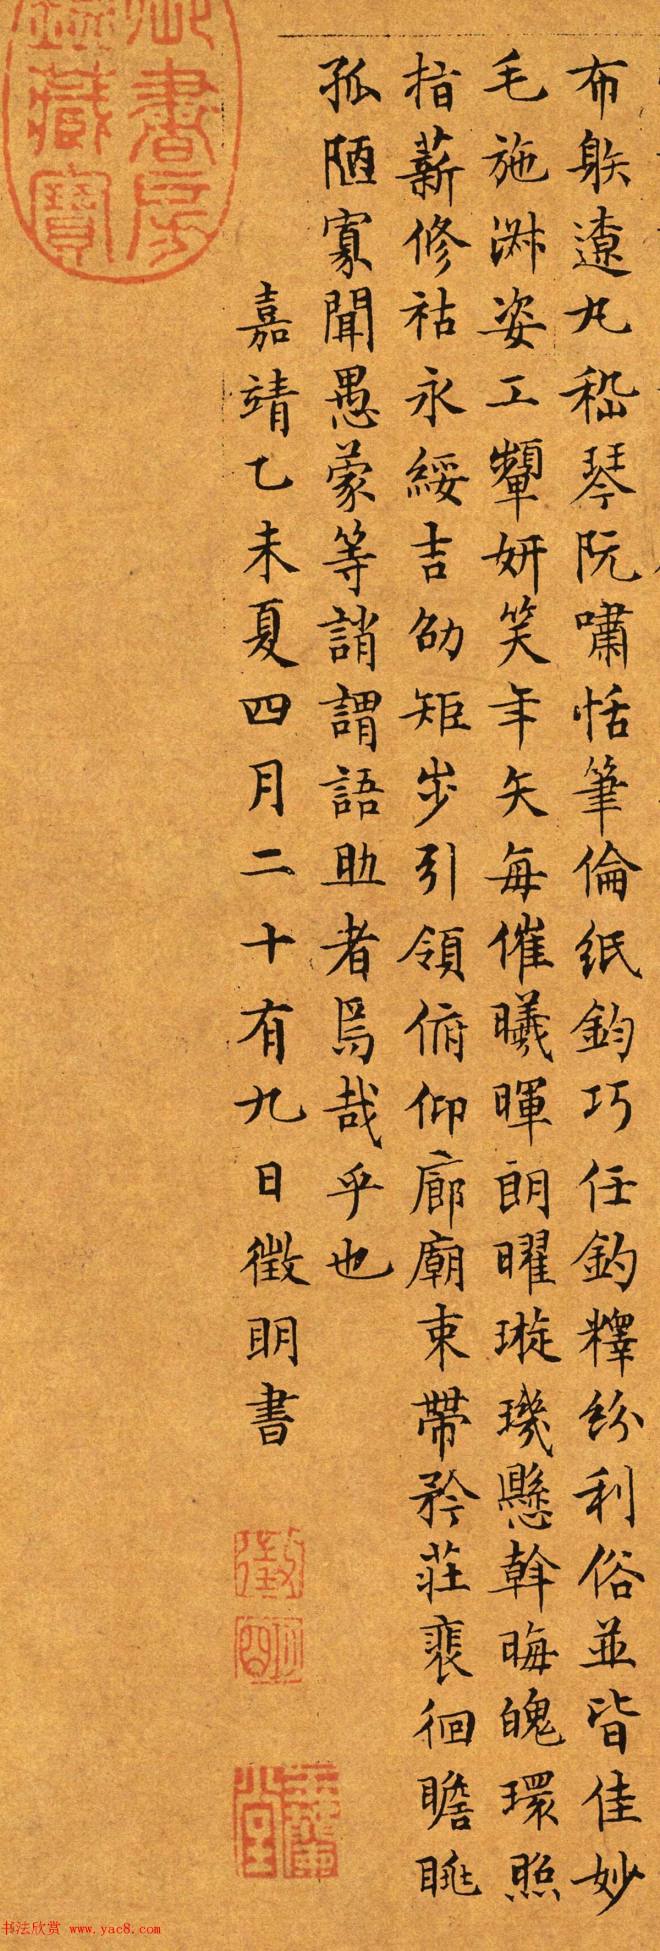 布躲遼丸嵇琴阮嘯恬筆倫紙鈞巧任釣釋紛利俗並皆佳妙
毛施淑姿工顰妍笑年矢每催曦暉朗曜璇璣懸斡晦魄環照
指薪修祜永綏吉劭矩步引領俯仰廊廟束帶矜莊裴徊瞻眺
孤陋寡聞愚蒙等誚謂語助者焉哉乎也
嘉靖乙未夏四月二十有九日徵明書
御書房
鑑藏寶
徵
明
玉磬
山
堂
书法欣赏 www.yac8.com